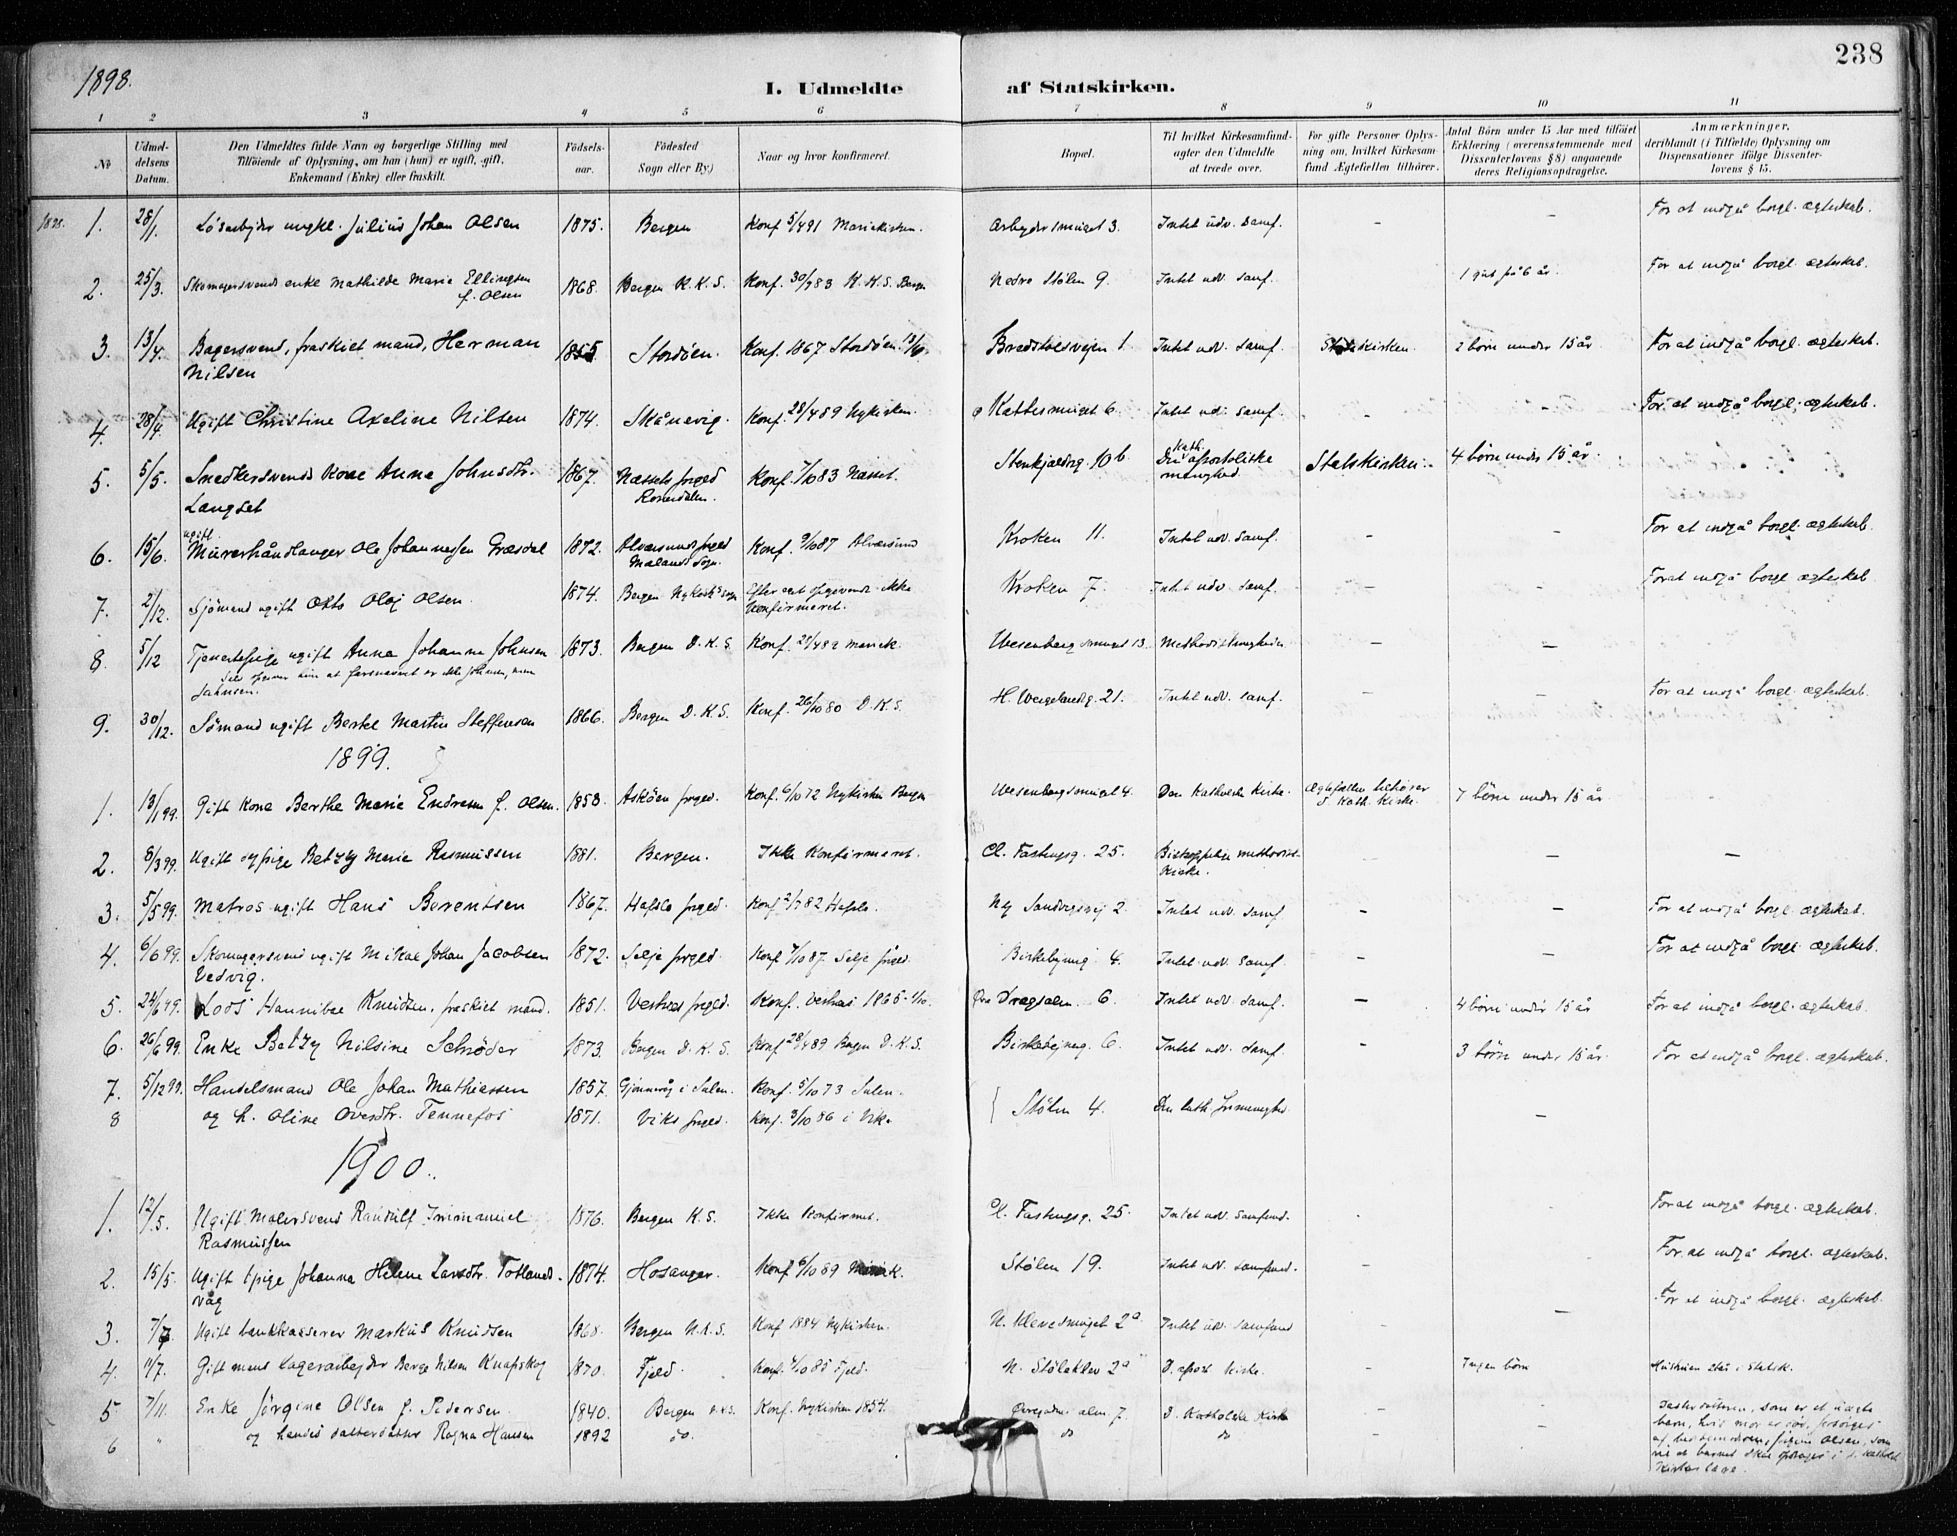 238
1898.
I. Udmeldte af Statskirken.
1 2 3 4 5 6 7 8 9 10 11
No
Udmeldelsens Datum.
Den Udmeldtes fulde Navn og borgerlige Stilling med
Tilföiende af Oplysning, om han (hun) er ugift, gift,
Enkemand (Enke) eller fraskilt.
Födselsaar.
Födested
Sogn eller By.)
Naar og hvor konfirmeret.
Bopæl.
Til hvilket Kirkesamfund
agter den Udmeldte
at træde over.
For gifte Personer Oplysning om, hvilket Kirkesamfund Ægtefællen tilhörer.
Antal Börn under 15 Aar med tilföiet
Erklæring (overensstemmende med
Dissenterlovens § 8) angaaende
deres Religionsopdragelse.
Anmærkninger,
deriblandt (i Tilfælde) Oplysning om
Dispensationer ifölge Dissenterlovens § 15.
1898. 1. 28/1. LöSarbejder ungkl. Julius Johan Olsen 1875. Bergen Konf. 5/4 91 Mariekirken. Arbejdersmuget 3. Intet udv. Samf. - - For at indgå borgl. ægteskab.
2. 25/3. Skomagersvends enke Mathilde Marie Ellingsen f. Olsen 1868. Bergen K.K.S. Konf. 30/9 83 K.K.S. Bergen Nedre Stölen 9. Intet udv. Samf. 1 gut på 6 år. For at indgå borgl. ægteskab.
3. 13/4. Bagersvend, fraskiet mand, Herman Nilsen 1855 Stordöen. Konf. 1867 Stordöen. Bredstölsvejen 1 Intet udv. Samf. Statskirken. 2 börn under 15 år For at indgå borgl. ægteskab.
4. 28/4. Ugift Christine Axeline Nilsen 1874. Skånevig. Konf. 28/4 89 Nykirken. Kattesmuget 6. Intet udv. Samf. - - For at indgå borgl. ægteskab.
5. 5/5. Snedkersvends kone Anna Johnsdtr. Langset 1867. Næssets prgjd Konf. 7/10 83 Næsset. Stenkjeldrg. 10b. Den Kath. apostoliske menighed. Statskirken. 4 börn under 15 år.
6. 15/6. ugift Murerhåndlanger Ole Johannessen Græsdal 1872. Alversund prgjd Konf. 9/10 87 Alversund Kroken 11. Intet udv. Samf. - - For at indgå borgl. ægteskab.
7. 2/12. Sjömand ugift Otto Olaj Olsen. 1874. Bergen Nykirk. sogn Efter eget opgivende ikke konfirmeret. Kroken 7. Intet udv. Samf. - - For at indgå borgl. ægteskab
8. 5/12 Tjenestepige ugift Anna Johanna Johnsen 1873. Bergen D.K.S. Konf. Mariek. Wesenbergsmuget 13. Methodistmenigheden - -
9. 30/12. Sömand ugift Bertel Martin Steffensen 1866. Bergen D.K.S. Konf. 26/10 80 D.K.S. H. Wergelandsg. 21. Intet udv. Samf. - - For at indgå borgl. ægteskab.
1899.
1. 13/1 99. Gift kone Berthe Marie Endresen f. Olsen. 1858. Asköen prgjd. Konf. 6/10 72 Nykirken Bergen Wesenbergsmuget 4. Den Katholske Kirke. Ægtefællen tilhörer d. Kath. Kirke. 7 börn under 15 år. -
2. 6/3 99. Ugift Betzy Marie Rasmussen 1881. Bergen. Ikke konfirmeret. Cl. Fastingsg. 25. Biskoppelige methodist-Kirke. - - -
3. 5/5 99. Matros ugift Hans Berentsen 1867. Hafslo prgjd. Konf. 82 Hafslo. Ny Sandvigsvej 2. Intet udv. Samf. - - For at indgå borgl. ægteskab.
4. 6/6 99. Skomagersvend ugift Mikal Johan Jacobsen Vedvig. 1872. Selje prgjd. Konf. 7/10 87. Selje prgjd. Birkebejnerg. 4. Intet udv. Samf. - - For at indgå borgl. ægteskab.
5. 24/6 99. Lods Hannibal Knudsen, fraskiet mand. 1851. Vestnes prgjd. Konf. Vestnes 1865. Dragsalm. 6. Intet udv. Samf. - 4 börn under 15 år For at indgå borgl. ægteskab.
6. 26/6 99. Enke Betzy Nilsine Schröder 1873. Bergen D.K.S. Konf. 28/4 89 Bergen D.K.S. Birkebejnerg. 6. Intet udv. Samf. - 3 börn under 15 år. For at indgå borgl. ægteskab.
7. 5/12 99. Handelsmand Ole Johan Mathiassen 1857. i Sulen. Konf. 5/10 73 Sulen.
8 og h. Oline Oversdtr. Tennefos 1871. Viks prgjd. Konf. 3/10 86 i Vik. Stölen 4. Den luth. frimenighed. -
1900.
1. 12/5. Ugift Malersvend Randulf Immanuel Rasmussen 1876. Bergen K.S. Ikke konfirmet. Cl. Fastingsg. 25. Intet udv. samfund. - For at indgå borgl. ægteskab.
2. 15/5. Ugift tjpige Johanna Helene Larsdtr. Totlandsvåg 1874. Hosanger. Konf. 6/10 89 Mariek. Stölen 19. Intet udv. samfund. - For at indgå borgl. ægteskab.
3. 7/7 Ugift bankkasserer Markus Knudsen 1868. Bergen N.K.S. Konf. 1884 Nykirken. N. Klevesmuget 2a Intet udv. samfund - - For at indgå borgl. ægteskab.
4. 11/7. Gift mand lagerarbejder Berge Nilsen Knapskog 1870. Fjeld. Konf. 4/10 85 Fjeld. N. Stölekleven 2a D. apost. Kirke. Ingen börn Hustruen står i Statsk.
5 7/11. Enke Jörgine Olsen f. Pedersen. 1840. Bergen Konf. Nykirken 1854. Övregaden alm. 7. D. Katholske Kirke - -
6 " og hendes datterdatter Ragna Hansen 1892 do. do do - -
Datterdatteren, som er et uægte barn, hvis mor er död, forsörges af bestemoderen, Jörgine Olsen, som vil at barnet skal opdrages i d. kathol. Kirkes lære.